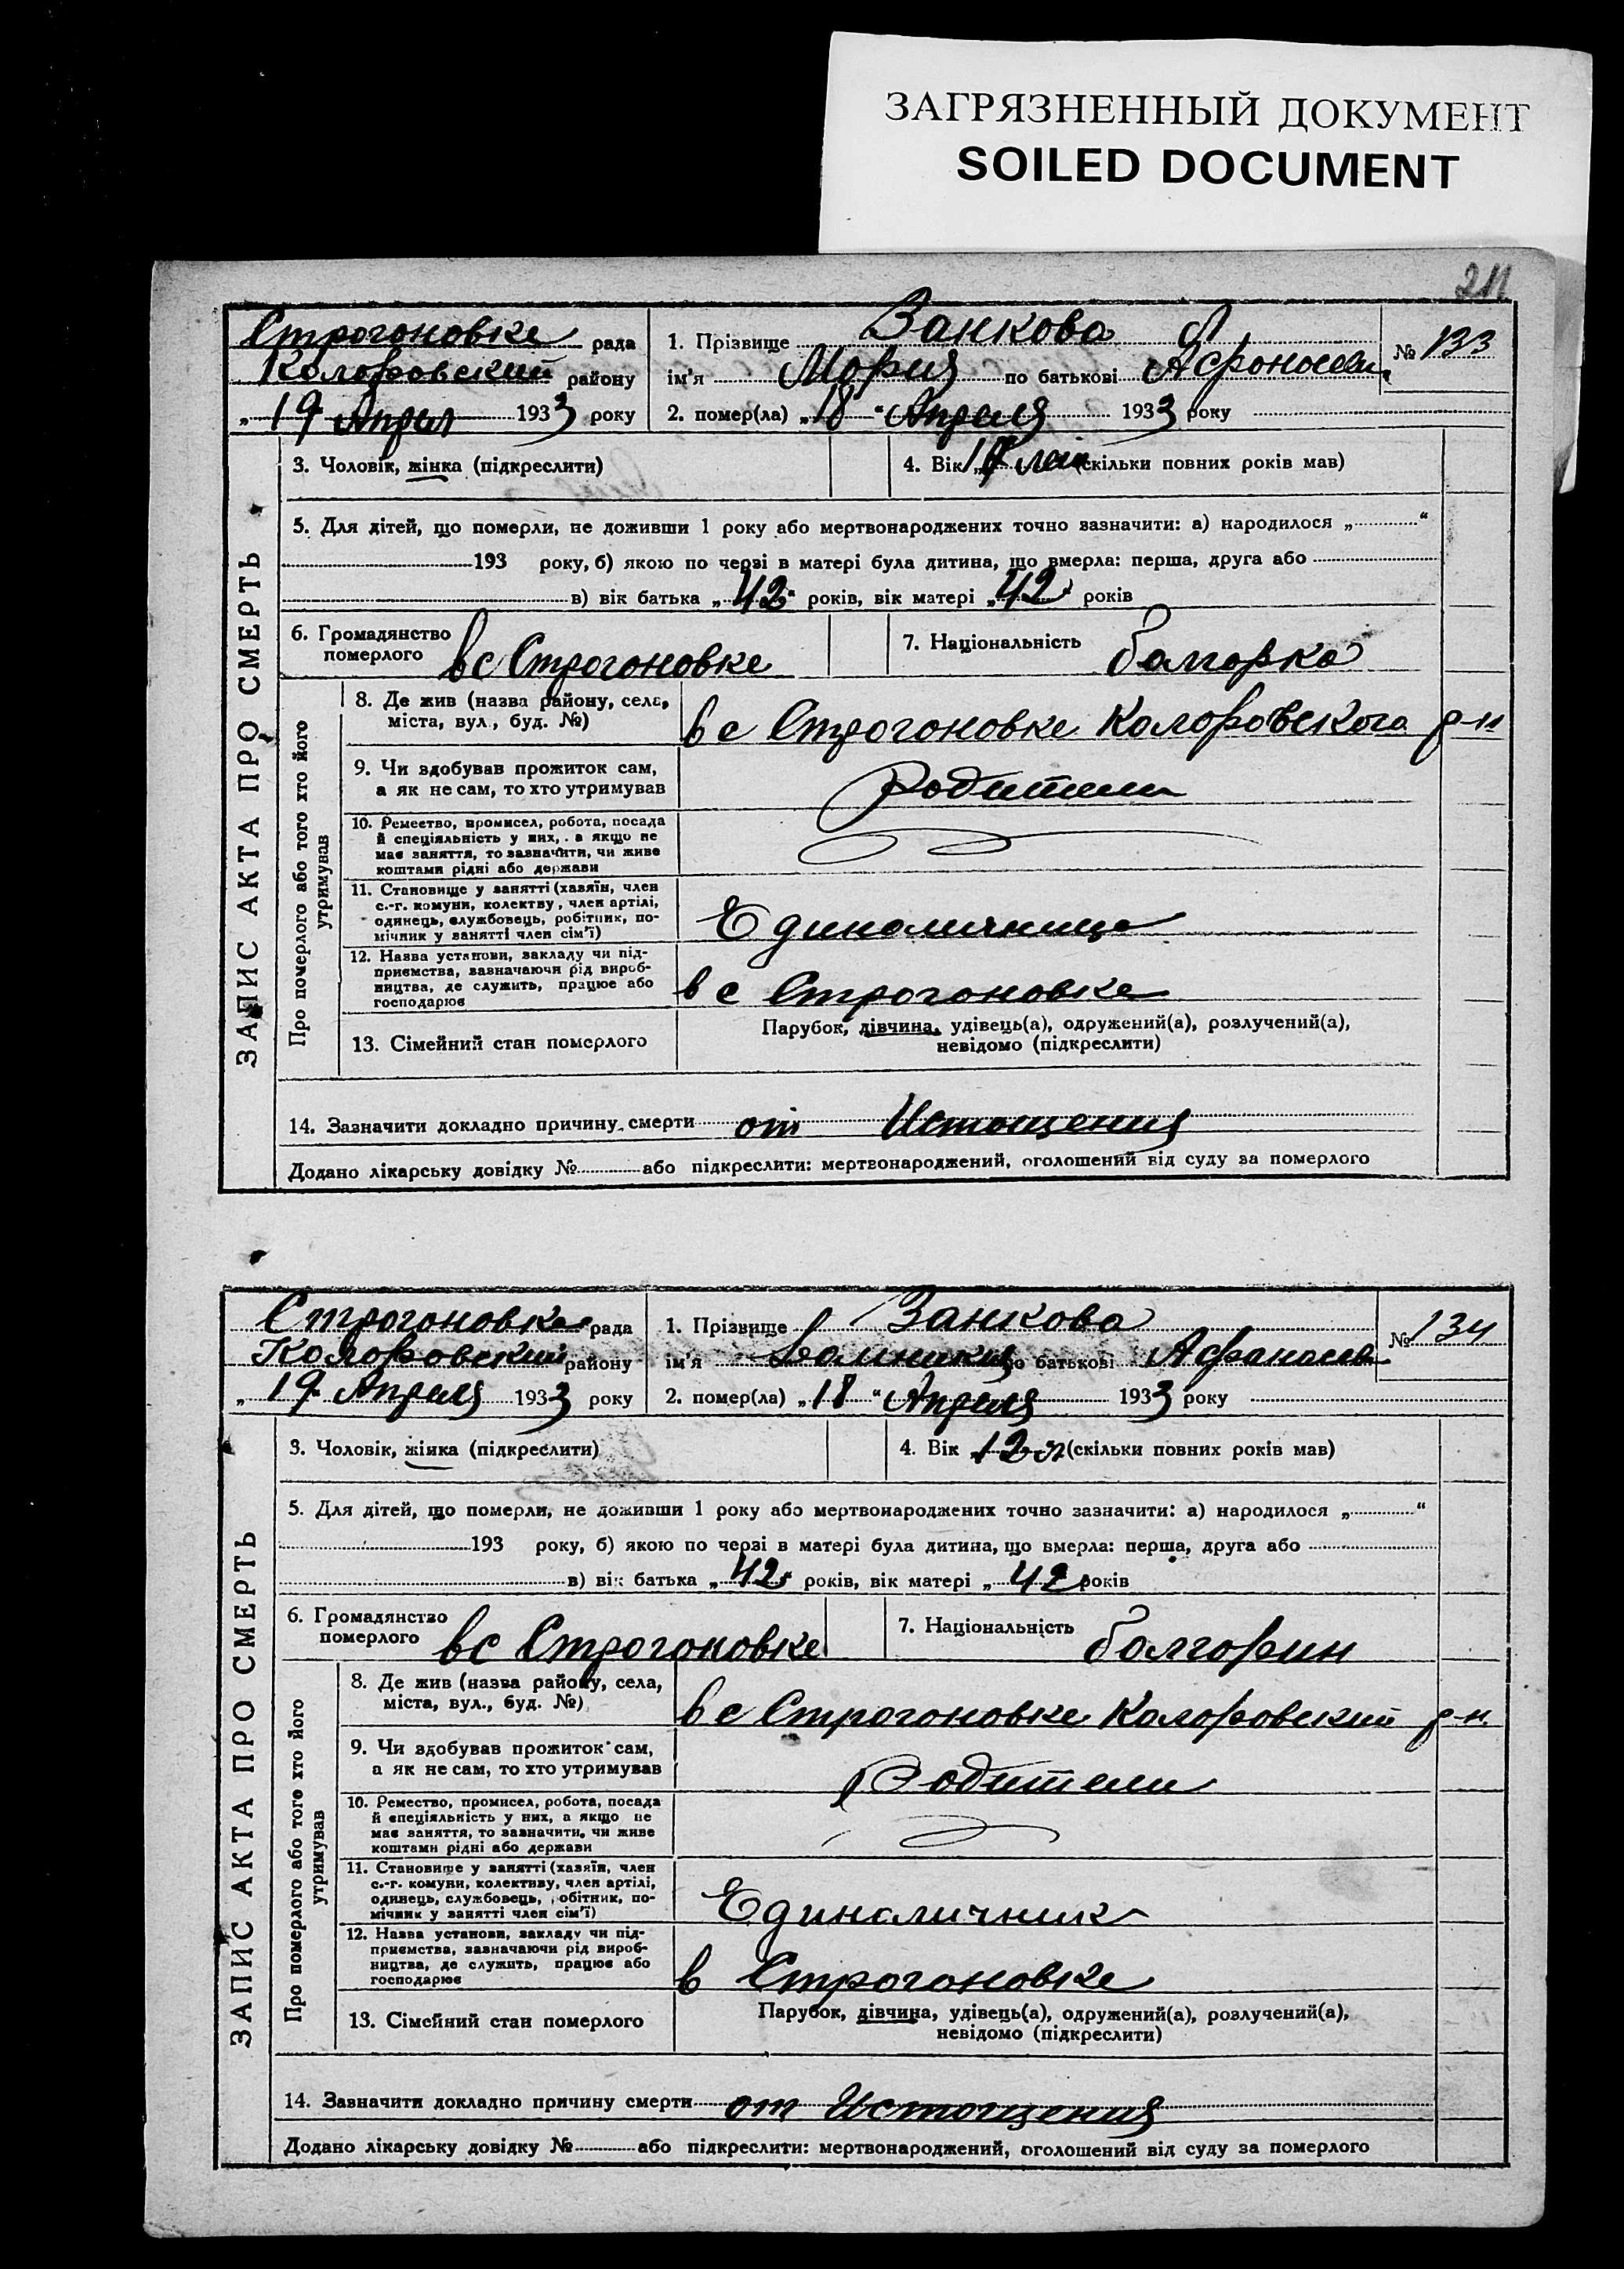 ЗАГРЯЗНЕННЫЙ ДОКУМЕНТ
SOILED DOCUMENT
211
ЗАПИС АКТА ПРО СМЕРТЬ
Строгоновке рада
Коларовский району
„19 Апрел 1933 року
1. Прізвище Занкова
ім'я Мория по батькові Афоносеви
№ 133
2. помер(ла) „18“ Апреля 1933 року
3. Чоловік, жінка (підкреслити)
4. Вік „17 лет (скільки повних років мав)
5. Для дітей, що померли, не доживши 1 року або мертвонароджених точно зазначити: а) народилося „ “
193 року, б) якою по черзі в матері була дитина, що вмерла: перша, друга або
в) вік батька „42“ років, вік матері „42“ років
6. Громадянство померлого в с Строгоновке
7. Національність болгорка
Про померлого або того хто його утримував
8. Де жив (назва району, села, міста, вул., буд. №) в с Строгоновке Коларовского р-н
9. Чи здобував прожиток сам, а як не сам, то хто утримував Родители
10. Ремество, промисел, робота, посада й спеціяльність у них, а якщо не має заняття, то зазначити, чи живе коштами рідні або держави
11. Становище у занятті (хазяїн, член с.-г. комуни, колективу, член артілі, одинець, службовець, робітник, помічник у занятті член сім'ї) Единоличница
12. Назва установи, закладу чи підприємства, зазначаючи рід виробництва, де служить, працює або господарює в с Строгоновке
13. Сімейний стан померлого Парубок, дівчина, удівець(а), одружений(а), розлучений(а), невідомо (підкреслити)
14. Зазначити докладно причину смерти от Истощения
Додано лікарську довідку № або підкреслити: мертвонароджений, оголошений від суду за померлого
ЗАПИС АКТА ПРО СМЕРТЬ
Строгоновке рада
Коларовский району
„19 Апреля 1933 року
1. Прізвище Занкова
ім'я по батькові Афанасев
№ 134
2. помер(ла) „18“ Апреля 1933 року
3. Чоловік, жінка (підкреслити)
4. Вік 12 л (скільки повних років мав)
5. Для дітей, що померли, не доживши 1 року або мертвонароджених точно зазначити: а) народилося „ “
193 року, б) якою по черзі в матері була дитина, що вмерла: перша, друга або
в) вік батька „42“ років, вік матері „42 років
6. Громадянство померлого в с Строгоновке
7. Національність болгорин
Про померлого або того хто його утримував
8. Де жив (назва району, села, міста, вул., буд. №) в с Строгоновке Коларовский р-н.
9. Чи здобував прожиток сам, а як не сам, то хто утримував Родители
10. Ремество, промисел, робота, посада й спеціяльність у них, а якщо не має заняття, то зазначити, чи живе коштами рідні або держави
11. Становище у занятті (хазяїн, член с.-г. комуни, колективу, член артілі, одинець, службовець, робітник, помічник у занятті член сім'ї) Единоличник
12. Назва установи, закладу чи підприємства, зазначаючи рід виробництва, де служить, працює або господарює в Строгоновке
13. Сімейний стан померлого Парубок, дівчина, удівець(а), одружений(а), розлучений(а), невідомо (підкреслити)
14. Зазначити докладно причину смерти от Истощения
Додано лікарську довідку № або підкреслити: мертвонароджений, оголошений від суду за померлого